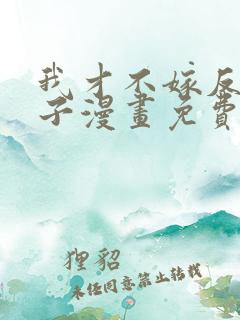 我才不嫁反
子漫畫免費
狸貂
未经同意禁止转载